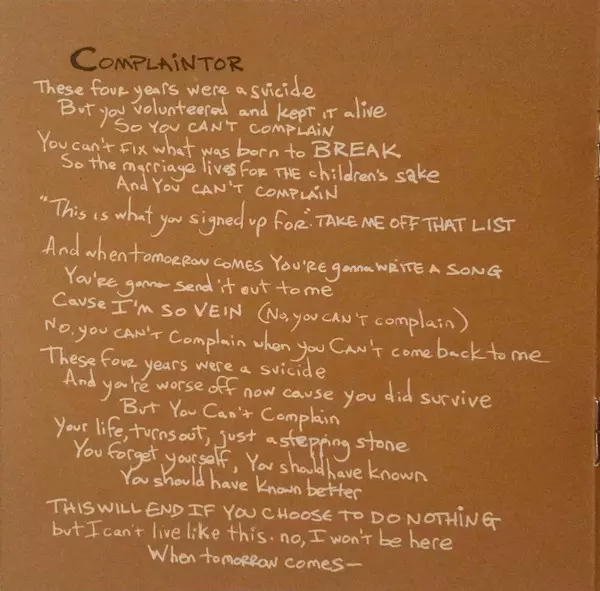 COMPLAINTOR
These four years were a suicide
But you volunteered and kept it alive
SO YOU CAN'T COMPLAIN
You can't fix what was born to BREAK
So the marriage lives FOR THE children's sake
And YOU CAN'T COMPLAIN
"This is what you signed up for". TAKE ME OFF THAT LIST
And when tomorrow comes You're gonna WRITE A SONG
You're gonna send it out to me
Cause I'M SO VEIN (No, you can't complain)
No, you can't Complain when you Can't come back to me
These four years were a suicide
And you're worse off now cause you did survive
But You Can't Complain
Your life, turns out, just a stepping stone
You forget yourself, You should have known
You should have known better
THIS WILL END IF YOU CHOOSE TO DO NOTHING
but I can't live like this. no, I won't be here
When tomorrow comes—